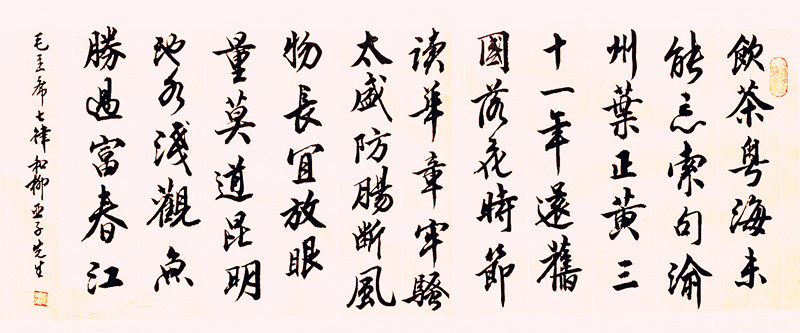 飲茶粵海未
能忘索句渝
州葉正黃三
十一年還舊
國落花時節
讀華章牢騷
太盛防腸斷風
物長宜放眼
量莫道昆明
池水淺觀魚
勝過富春江
毛主席七律和柳亚子先生